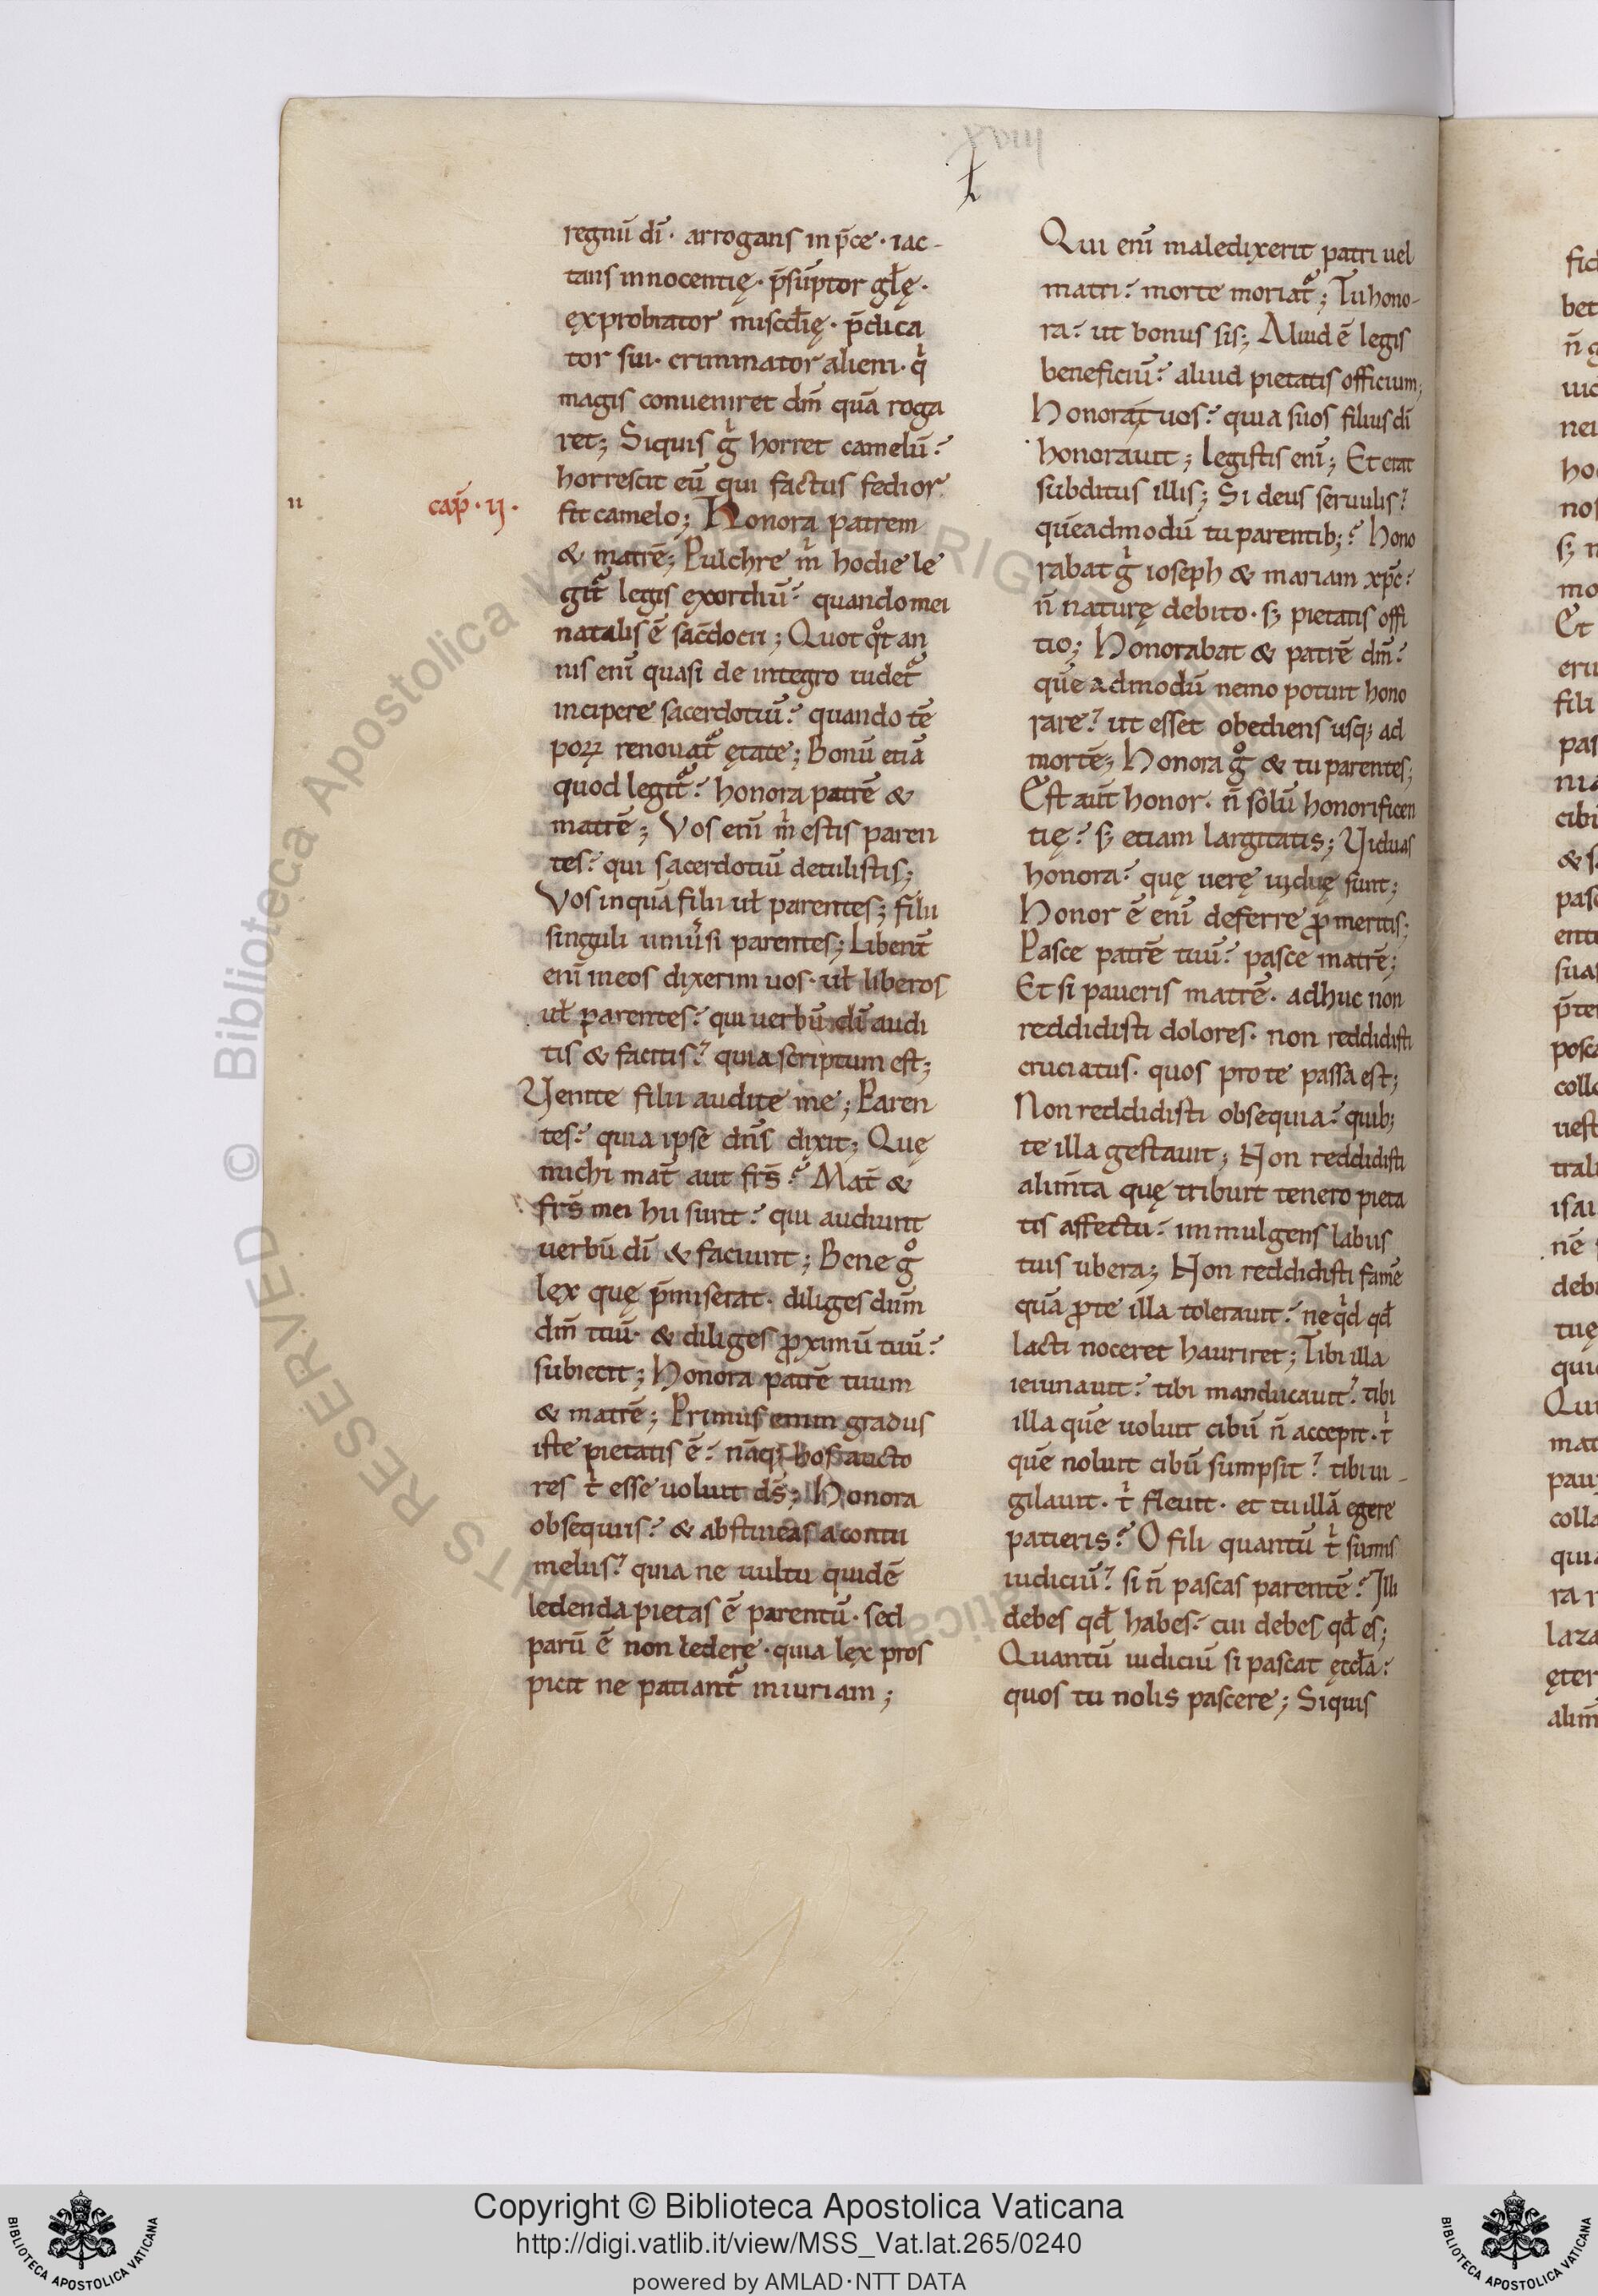 regnū dī· arrogans in p̄ce· iac-
tans innocentię· p̄sūptor gƚę·
exprobrator miscđię· p̄dica
tor sui· criminator alieni· qͥ
magis conueniret dm̄ quā roga
ret; Siquis gͥ horret camelū?
horrescit eū qui factus fedior
cap̄· ıȷ·
ıı
fit camelo; Honora patrem
& matrē; Pulchre m̄ hodie le
git᷑ legis exordiū? quando mei
natalis ē sac̄docii; Quot qͦt an
nis enī quasi de integro uidet᷑
incipere sacerdotiū? quando tē
poꝝ renouat᷑ ętate; Bonū etiā
quod legit᷑? honora patrē &
matrē; Vos enī m̄ estis paren
tes? qui sacerdotiū detulistis;
Vos inquā filii uƚ parentes; filii
singuli uniūsi parentes; Libent̄
enī meos dixerim uos· uƚ liberos
uƚ parentes? qui uerbū dī audi
tis & facitis? quia scriptum est;
Uenite filii audite me; Paren
tes? quia ipse dn̄s dixit; Quę
michi mat̄ aut frs̄? Mat̄ &
frs̄ mei hii sunt? qui audiunt
uerbū dī & faciunt; Bene gͦ
lex quę p̄miserat· diliges dn̄m
dm̄ tuū· & diliges ꝓximū tuū?
subiecit; Honora patrē tuum
& matrē; Primus enim gradus
iste pietatis ē? nāq; hos aucto
res t̄ esse uoluit ds̄; Honora
obsequiis? & abstineas a contu
meliis? quia ne uultu quidē
ledenda pietas ē parentū· sed
parū ē non ledere· quia lex pros
picit ne patiant᷑ iniuriam;
Qui enī maledixerit patri uel
matri? morte moriat᷑; Tu hono-
ra? ut bonus sis; Aliud ē legis
beneficiū? aliud pietatis officium;
Honorat uos? quia suos filius dī
honorauit; legistis enī; Et erat
subditus illis; Si deus seruulis?
quēadmodū tu parentib;? Hono
rabat gͥ ioseph & mariam xp̄c?
n̄ naturę debito· s; pietatis offi
tio; Honorabat & patrē dm̄?
quēadmodū nemo potuit hono
rare? ut esset obediens usq; ad
mortē; Honora gͦ & tu parentes;
Est aut̄ honor· n̄ solū honorificen
tię? s; etiam largitatis; Uiduas
honora? quę uerę uiduę sunt;
Honor ē enī deferre ꝓ meritis;
Pasce patrē tuū? pasce matrē;
Et si paueris matrē· adhuc non
reddidisti dolores· non reddidisti
cruciatus· quos pro te passa est;
Non reddidisti obsequia? quib;
te illa gestauit; Non reddidisti
alim̄ta quę tribuit tenero pieta
tis affectu? immulgens labiis
tuis ubera; Non reddidisti famē
quā ꝓ te illa tolerauit? ne qͥd qđ
lacti noceret hauriret; Tibi illa
ieiunauit? tibi manducauit? tibi
illa quē uoluit cibū n̄ accepit· tͥ
quē noluit cibū sumpsit? tibi ui-
gilauit· tͥ fleuit· et tu illā egere
patieris? O fili quantū tͥ sumis
iudiciū? si n̄ pascas parentē? Illi
debes qđ habes? cui debes qđ es;
Quantū iudiciū si pascat ęccƚa?
quos tu nolis pascere; Siquis
Copyright © Biblioteca Apostolica Vaticana
http://digi.vatlib.it/view/MSS_Vat.lat.265/0240
powered by AMLAD·NTT DATA